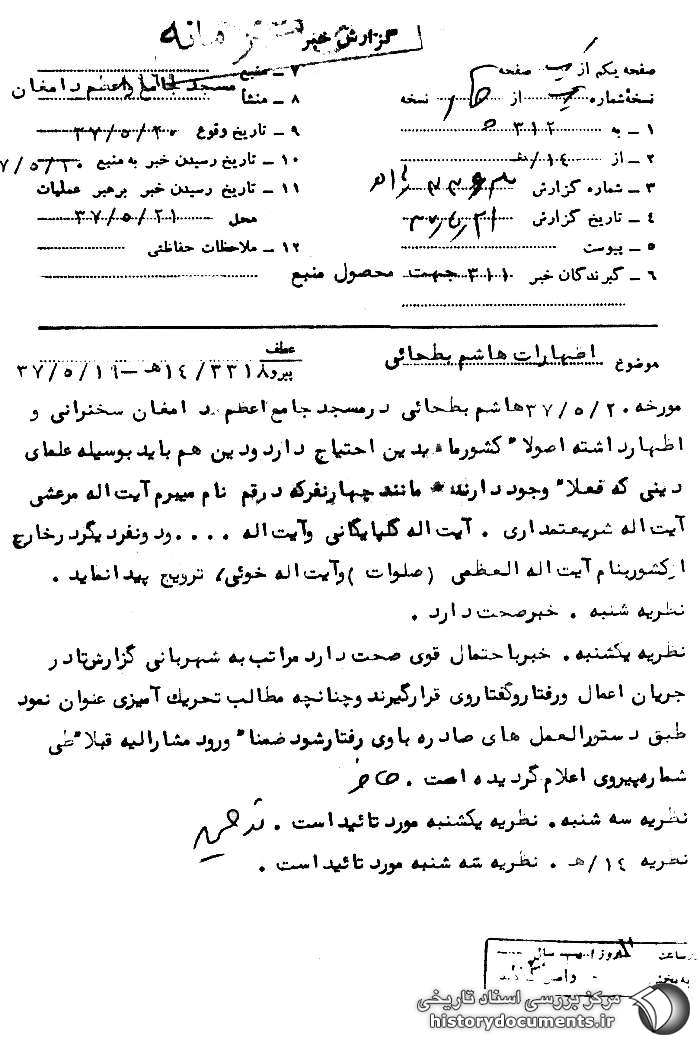 گزارش خبر
صفحه یکم از یک صفحه
نسخه شماره از نسخه
۱ ـ به ۳۱۲
۲ ـ از ۱۴/ه
۳ ـ شماره گزارش
۴ ـ تاریخ گزارش
۵ ـ پیوست
۶ ـ گیرندگان خبر ۳۱۱ جهت محصول منبع
۷ ـ منبع
۸ ـ منشأ مسجد جامع اعظم دامغان
۹ ـ تاریخ وقوع ۳۷/۵/۲۰
۱۰ ـ تاریخ رسیدن خبر به منبع
۱۱ ـ تاریخ رسیدن خبر برهبر عملیات
محل ۳۷/۵/۲۱
۱۲ ـ ملاحظات حفاظتی
موضوع اظهارات هاشم بطحائی
عطف
پیرو ۱۴/۳۳۱۸ه‍ـ ۳۷/۵/۱۹
مورخه ۳۷/۵/۲۰ هاشم بطحائی در مسجد جامع اعظم دامغان سخنرانی و
اظهار داشته اصولا" کشور ما بدین احتیاج دارد و دین هم باید بوسیله علمای
دینی که فعلا" وجود دارند مانند چهار نفر که در قم نام میبرم آیت اله مرعشی
آیت اله شریعتمداری . آیت اله گلپایگانی و آیت اله .... و دو نفر دیگر در خارج
از کشور بنام آیت اله العظمی (صلوات) و آیت اله خوئی، ترویج پیدا نماید .
نظریه شنبه . خبر صحت دارد .
نظریه یکشنبه . خبر باحتمال قوی صحت دارد مراتب به شهربانی گزارش تا در
جریان اعمال و رفتار و گفتار وی قرار گیرند و چنانچه مطالب تحریک آمیزی عنوان نمود
طبق دستورالعمل های صادره با وی رفتار شود ضمنا" ورود مشارالیه قبلا" طی
شماره پیروی اعلام گردیده است .
نظریه سه شنبه . نظریه یکشنبه مورد تائید است .
نظریه ۱۴/ه . نظریه سه شنبه مورد تائید است .
مرکز بررسی اسناد تاریخی
historydocuments.ir